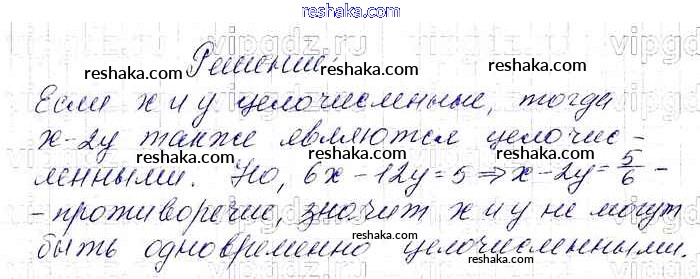 reshaka.com
Решение:
reshaka.com
reshaka.com
Если x и y целочисленные, тогда
x-2y также являются целочис-
reshaka.com
reshaka.com
ленными. Но, 6x-12y=5⇒x-2y=5/6-
reshaka.com
reshaka.com
-противоречие, значит x и y не могут
быть одновременно целочисленными.
reshaka.com